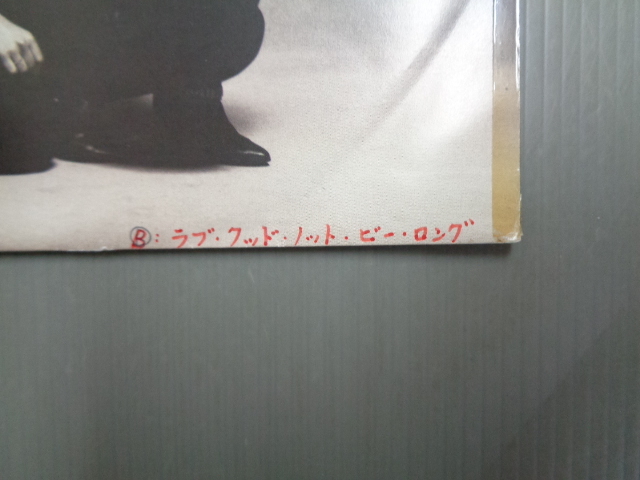 Ⓑ: ラブ・クッド・ノット・ビー・ロング